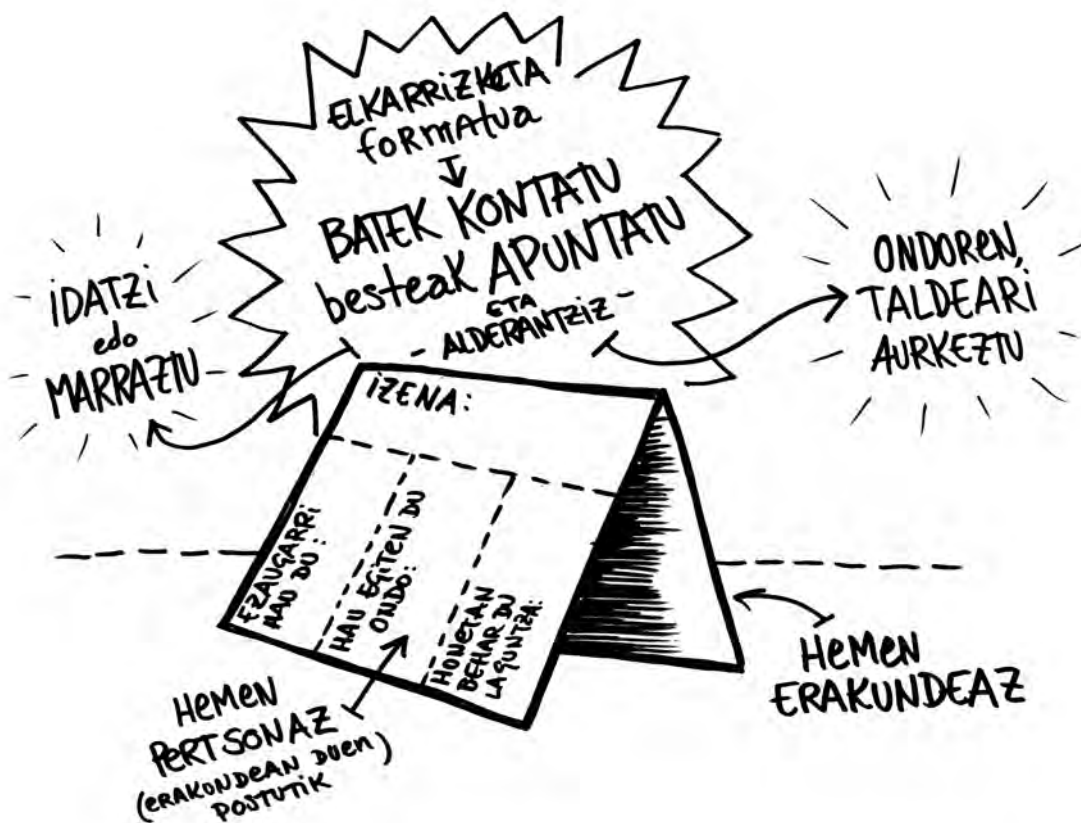 ELKARRIZKETA
formatua
BATEK KONTATU
besteak APUNTATU
ETA
- ALDERANTZIZ -
iDATZi
edo
MARRAZTU
ONDOREN,
TALDEARi
AURKEZTU
iZENA:
EZAUGARRi
HAU DU:
HAU EGiTEN DU
ONDO:
HONETAN
BEHAR DU
LAGUNTZA:
HEMEN
PERTSONAZ
(ERAKUNDEAN DUEN)
POSTUTIK
HEMEN
ERAKUNDEAZ